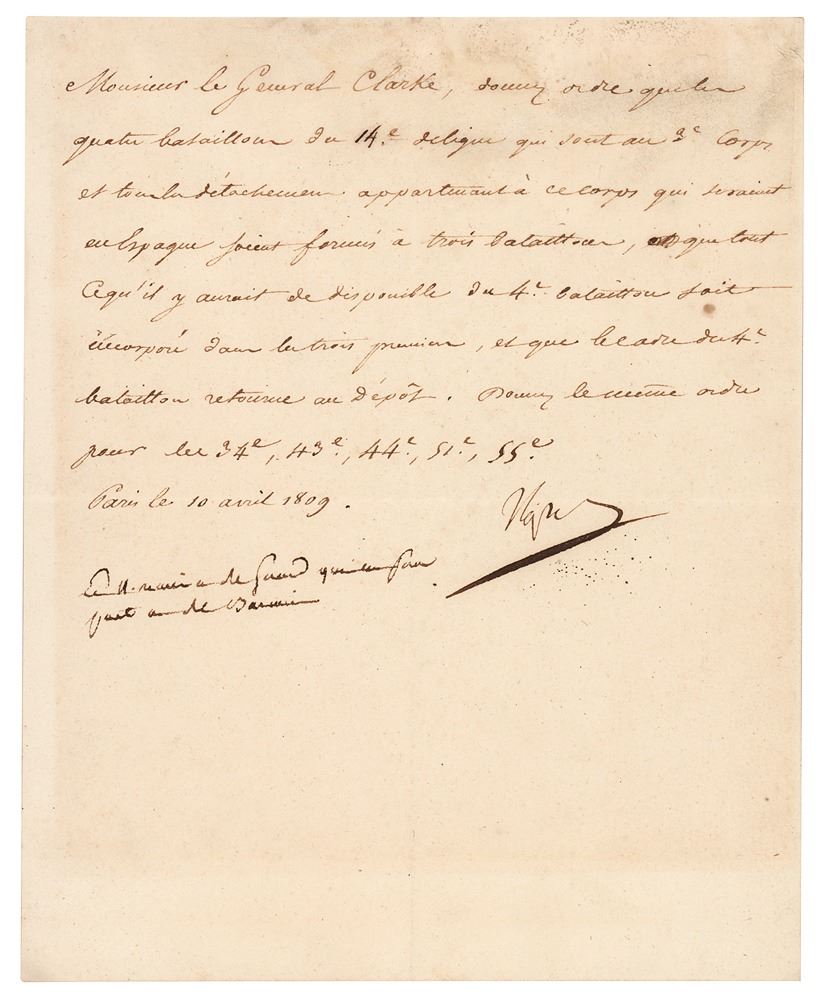 Monsieur le General Clarke, donnez ordre que les
quatre bataillons du 14.e de ligne qui sont au 3.e Corps
et tous les détachemens appartenant à ce corps qui seraient
en Espagne soient formés à trois bataillons, et que tout
ce qu'il y aurait de disponible du 4.e bataillon soit
incorporé dans les trois premiers, et que le cadre du 4.e
bataillon retourne au Dépôt. Donnez le même ordre
pour les 34e, 43e, 44e, 51e, 55e.
Paris le 10 avril 1809.
Nap